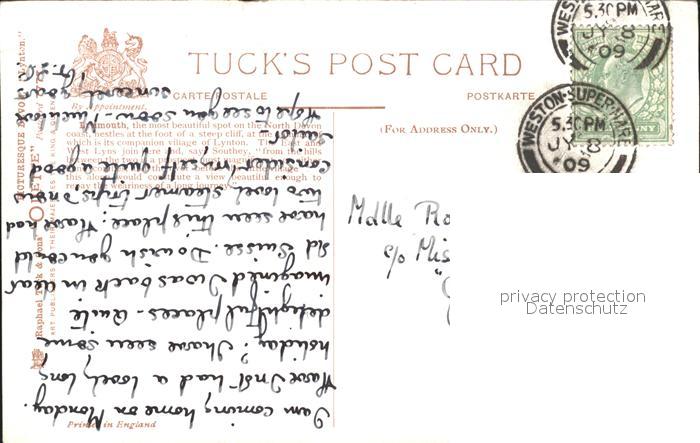 TUCK'S POST CARD
CARTE POSTALE
POSTKARTE
By Appointment.
(FOR ADDRESS ONLY.)
WESTON-SUPER-MARE
5.30 PM
JY 8
09
WESTON-SUPER-MARE
5.30 PM
JY 8
09
Lynmouth, the most beautiful spot on the North Devon
coast, nestles at the foot of a steep cliff, at the
which is its companion village of Lynton. The East and
West Lyns join here and, say Southey, "from the hills
between the two
this alone would constitute a view beautiful enough to
repay the weariness of a long journey."
"OILETTE"
Raphael Tuck & Sons
ART PUBLISHERS TO THEIR MAJESTIES THE KING & QUEEN
Printed in England
I am coming home on Monday.
Have I not had a lovely long
holiday? I have seen some
delightful places. Quite
imagined I was back in dear
old Suisse. Do wish you could
have seen this place. Have had
two lovely steamer trips, now
consider myself quite a good
sailor.
Hope to see you soon. Much love
Mdlle Ro
c/o Mis
privacy protection
Datenschutz